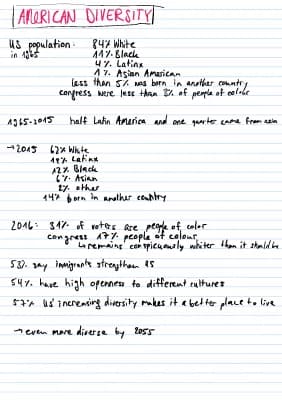 AMERICAN DIVERSITY
US population: 84% White
in 1965 11% Black
4% Latinx
1% Asian American
less than 5% was born in another country
congress were less than 2% of people of colour
1965-2015 half Latin America and one quarter came from asia
→ 2015 62% White
18% Latinx
12% Black
6% Asian
2% other
14% born in another country
2016: 31% of voters are people of color
congress 17% people of colour
↳ remains conspicuously whiter than it should be
58% say immigrants strengthen US
54% have high openness to different cultures
57% US' increasing diversity makes it a better place to live
→ even more diverse by 2055